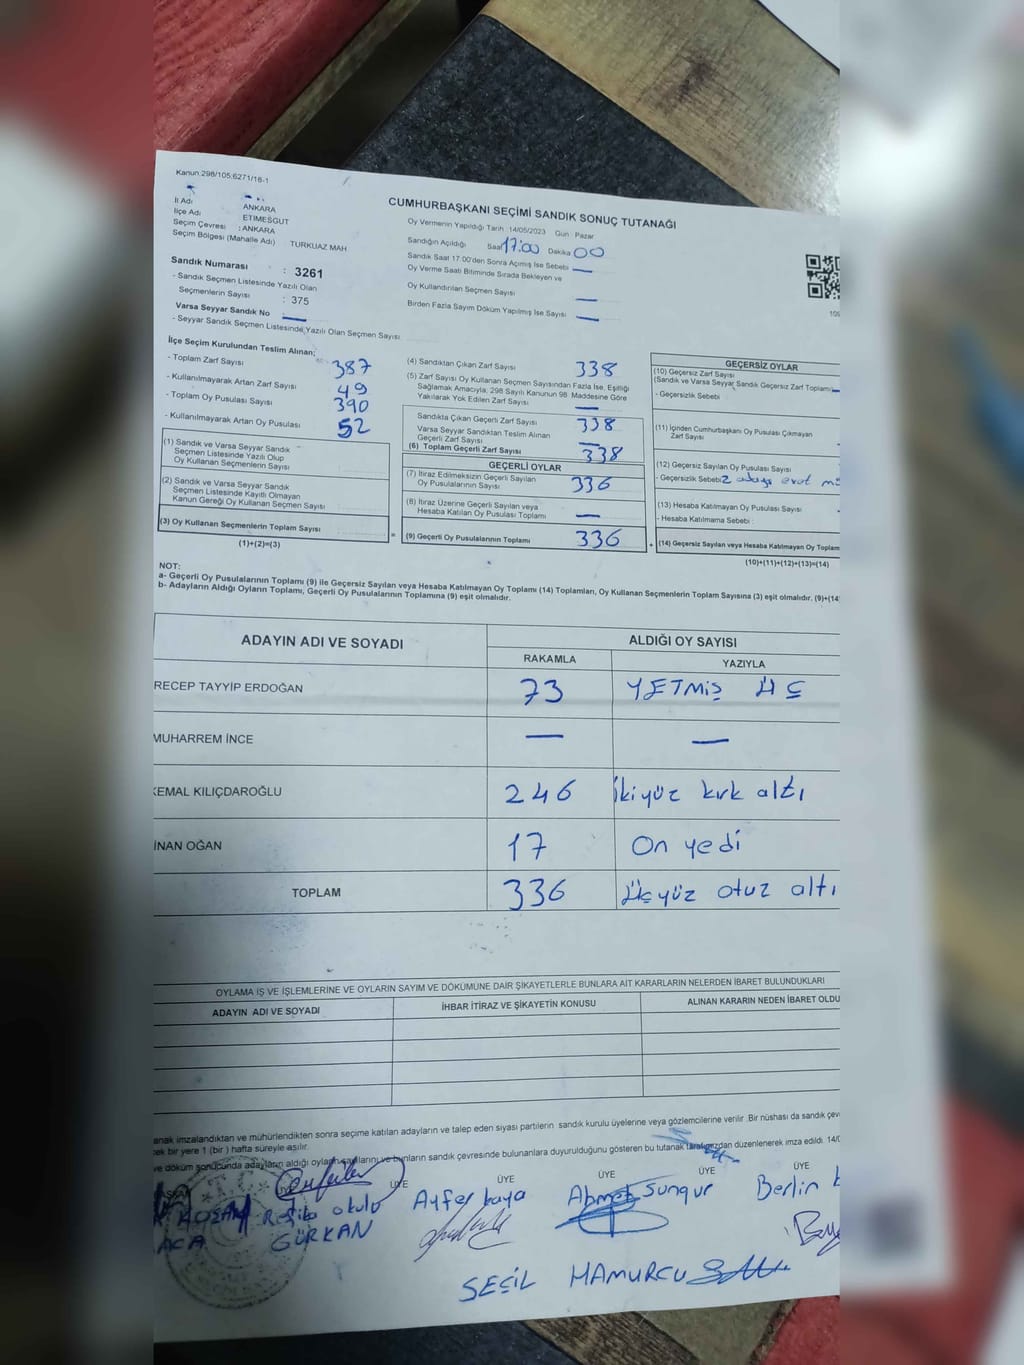 Kanun.298/105,6271/16-1
CUMHURBAŞKANI SEÇİMİ SANDIK SONUÇ TUTANAĞI
İl Adı ANKARA
İlçe Adı ETİMESGUT
Seçim Çevresi : ANKARA
Seçim Bölgesi (Mahalle Adı) TURKUAZ MAH
Sandık Numarası : 3261
- Sandık Seçmen Listesinde Yazılı Olan
Seçmenlerin Sayısı : 375
Varsa Seyyar Sandık No —
- Seyyar Sandık Seçmen Listesinde Yazılı Olan Seçmen Sayısı
Oy Vermenin Yapıldığı Tarih :14/05/2023 Gün : Pazar
Sandığın Açıldığı Saat 17:00 Dakika 00
Sandık Saat 17.00'den Sonra Açılmış İse Sebebi —
Oy Verme Saati Bitiminde Sırada Bekleyen ve
Oy Kullandırılan Seçmen Sayısı —
Birden Fazla Sayım Döküm Yapılmış İse Sayısı —
İlçe Seçim Kurulundan Teslim Alınan;
- Toplam Zarf Sayısı 387
- Kullanılmayarak Artan Zarf Sayısı 49
- Toplam Oy Pusulası Sayısı 390
- Kullanılmayarak Artan Oy Pusulası 52
(1) Sandık ve Varsa Seyyar Sandık
Seçmen Listesinde Yazılı Olup
Oy Kullanan Seçmenlerin Sayısı
(2) Sandık ve Varsa Seyyar Sandık
Seçmen Listesinde Kayıtlı Olmayan
Kanun Gereği Oy Kullanan Seçmen Sayısı
(3) Oy Kullanan Seçmenlerin Toplam Sayısı
(1)+(2)=(3)
(4) Sandıktan Çıkan Zarf Sayısı 338
(5) Zarf Sayısı Oy Kullanan Seçmen Sayısından Fazla İse, Eşitliği
Sağlamak Amacıyla; 298 Sayılı Kanunun 98. Maddesine Göre
Yakılarak Yok Edilen Zarf Sayısı —
Sandıkta Çıkan Geçerli Zarf Sayısı 338
Varsa Seyyar Sandıktan Teslim Alınan
Geçerli Zarf Sayısı —
(6) Toplam Geçerli Zarf Sayısı 338
GEÇERLİ OYLAR
(7) İtiraz Edilmeksizin Geçerli Sayılan
Oy Pusulalarının Sayısı 336
(8) İtiraz Üzerine Geçerli Sayılan veya
Hesaba Katılan Oy Pusulası Toplamı —
= (9) Geçerli Oy Pusulalarının Toplamı 336
GEÇERSİZ OYLAR
(10) Geçersiz Zarf Sayısı
(Sandık ve Varsa Seyyar Sandık Geçersiz Zarf Toplamı
- Geçersizlik Sebebi
(11) İçinden Cumhurbaşkanı Oy Pusulası Çıkmayan
Zarf Sayısı
(12) Geçersiz Sayılan Oy Pusulası Sayısı
- Geçersizlik Sebebi 2 adaya evet
(13) Hesaba Katılmayan Oy Pusulası Sayısı
- Hesaba Katılmama Sebebi :
+ (14) Geçersiz Sayılan veya Hesaba Katılmayan Oy Toplam
(10)+(11)+(12)+(13)=(14)
NOT:
a- Geçerli Oy Pusulalarının Toplamı (9) ile Geçersiz Sayılan veya Hesaba Katılmayan Oy Toplamı (14) Toplamları, Oy Kullanan Seçmenlerin Toplam Sayısına (3) eşit olmalıdır. (9)+(14
b- Adayların Aldığı Oyların Toplamı, Geçerli Oy Pusulalarının Toplamına (9) eşit olmalıdır.
ADAYIN ADI VE SOYADI ALDIĞI OY SAYISI
RAKAMLA YAZIYLA
RECEP TAYYİP ERDOĞAN 73 YETMİŞ ÜÇ
MUHARREM İNCE — —
KEMAL KILIÇDAROĞLU 246 İkiyüz kırk altı
İNAN OĞAN 17 On yedi
TOPLAM 336 Üçyüz otuz altı
OYLAMA İŞ VE İŞLEMLERİNE VE OYLARIN SAYIM VE DÖKÜMÜNE DAİR ŞİKAYETLERLE BUNLARA AİT KARARLARIN NELERDEN İBARET BULUNDUKLARI
ADAYIN ADI VE SOYADI İHBAR İTİRAZ VE ŞİKAYETİN KONUSU ALINAN KARARIN NEDEN İBARET OLDU
anak imzalandıktan ve mühürlendikten sonra seçime katılan adayların ve talep eden siyasi partilerin sandık kurulu üyelerine veya gözlemcilerine verilir. Bir nüshası da sandık çev
ek bir yere 1 (bir) hafta süreyle asılır.
ve döküm sonucunda adayların aldığı oyların sayılarını ve bunların sandık çevresinde bulunanlara duyurulduğunu gösteren bu tutanak tarafımızdan düzenlenerek imza edildi. 14/0
ÜYE ÜYE ÜYE ÜYE
Ayfer Kaya Ahmet Sungur Berlin
GÜRKAN
SEÇİL HAMURCU